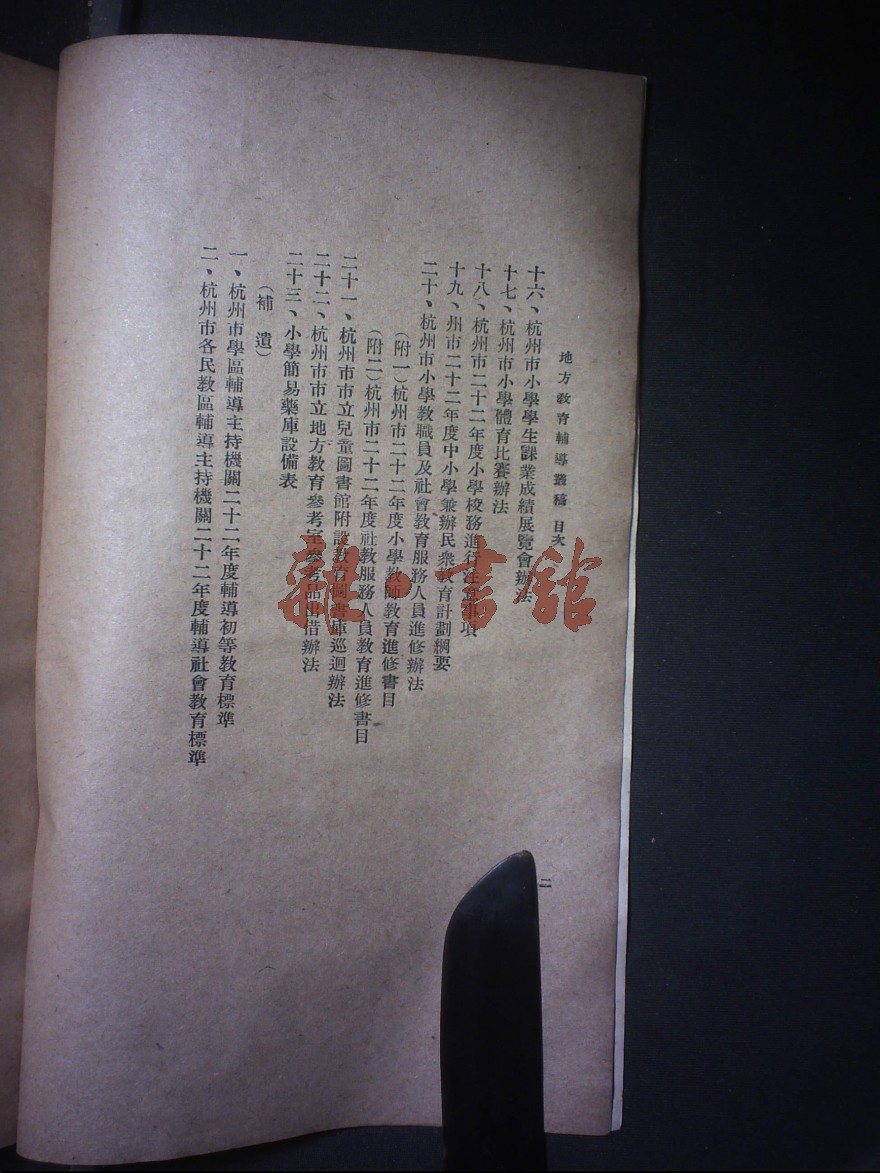 地方教育輔導叢稿 目次
十六、杭州市小學學生課業成績展覽會辦法
十七、杭州市小學體育比賽辦法
十八、杭州市二十二年度小學校務進行注意事項
十九、州市二十二年度中小學兼辦民衆教育計劃綱要
二十、杭州市小學教職員及社會教育服務人員進修辦法
（附一）杭州市二十二年度小學教師教育進修書目
（附二）杭州市二十二年度社教服務人員教育進修書目
二十一、杭州市市立兒童圖書館附設教育圖書庫巡迴辦法
二十二、杭州市市立地方教育參考室參考品出借辦法
二十三、小學簡易藥庫設備表
（補遺）
一、杭州市學區輔導主持機關二十二年度輔導初等教育標準
二、杭州市各民教區輔導主持機關二十二年度輔導社會教育標準
二
龍小書館